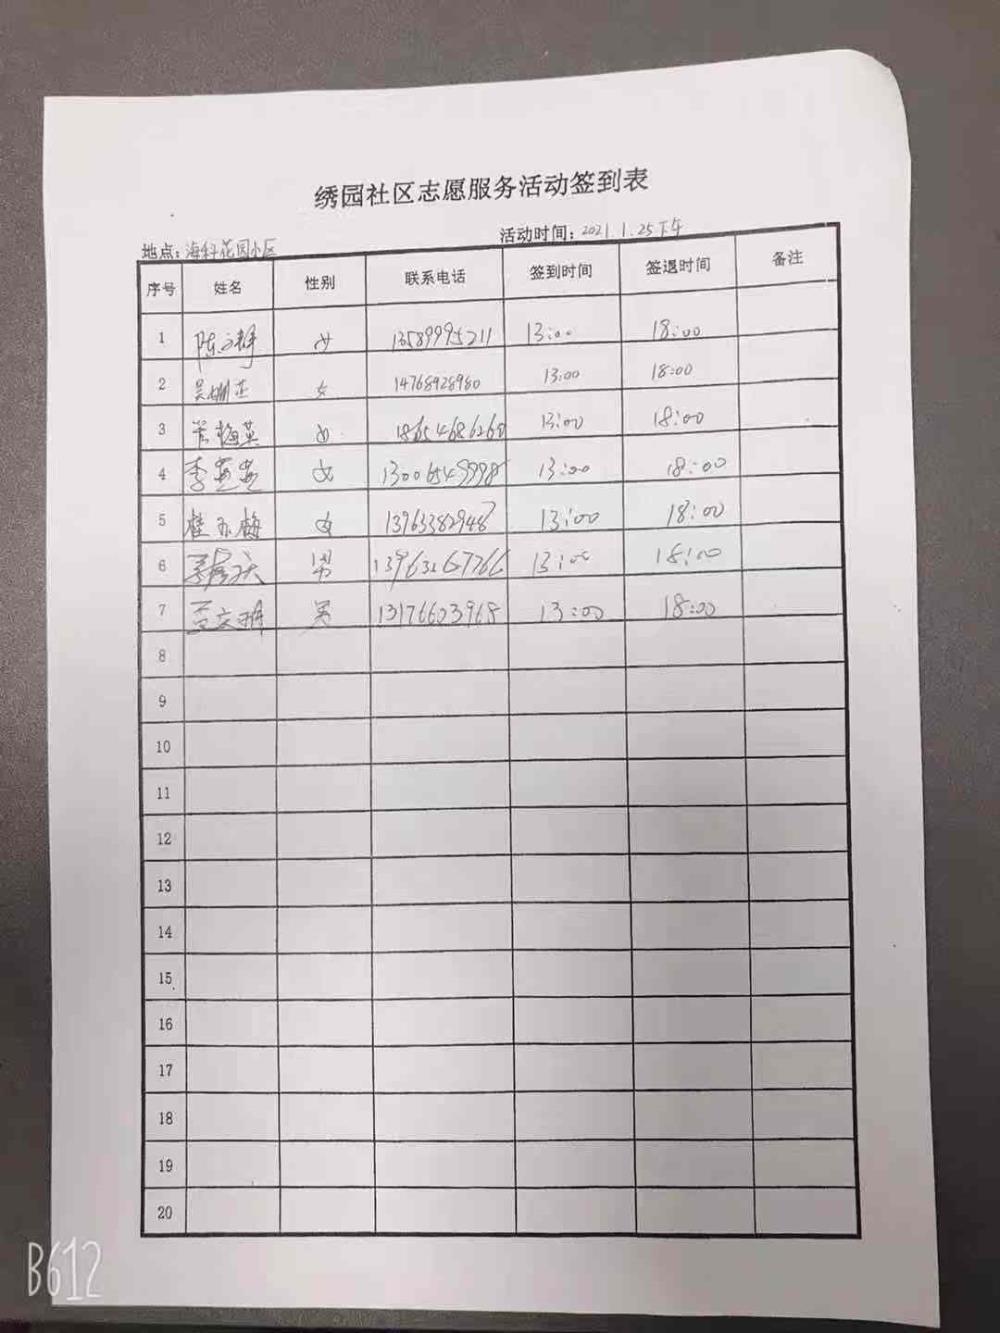 绣园社区志愿服务活动签到表
地点：海科花园小区 活动时间：2021.1.25下午
序号 姓名 性别 联系电话 签到时间 签退时间 备注
1 女 13589995211 13:00 18:00
2 女 14768928980 13:00 18:00
3 女 18654686260 13:00 18:00
4 李燕燕 女 13006549998 13:00 18:00
5 女 13963382948 13:00 18:00
6 男 13963267266 13:00 18:00
7 男 13176603968 13:00 18:00
8
9
10
11
12
13
14
15
16
17
18
19
20
B612